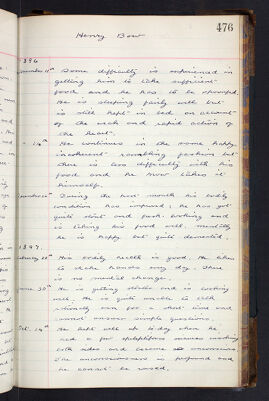 476
Henry Bow
1896
Some difficulty is experienced in
getting him to take sufficient
food and he has to be
He is sleeping fairly well but
is still kept in bed on account
of the weak and rapid action of
the heart.
He continues in the same happy
incoherent rambling fashion but
there is less difficulty with his
food and he now takes it
himself.
During the month his bodily
condition has improved; he has got
quite stout and is looking and
is taking his food well. Mentally
he is happy but quite demented.
1897.
His bodily health is good. He likes
to shake hands every day. There
is no mental change.
June 30th He is getting stouter and is looking
well. He is quite unable to talk
rationally even for a short time and
cannot answer simple questions.
Oct. He kept well up to-day when he
had a few epileptiform seizures involving
both sides and became
The unconsciousness is profound and
he cannot be roused.